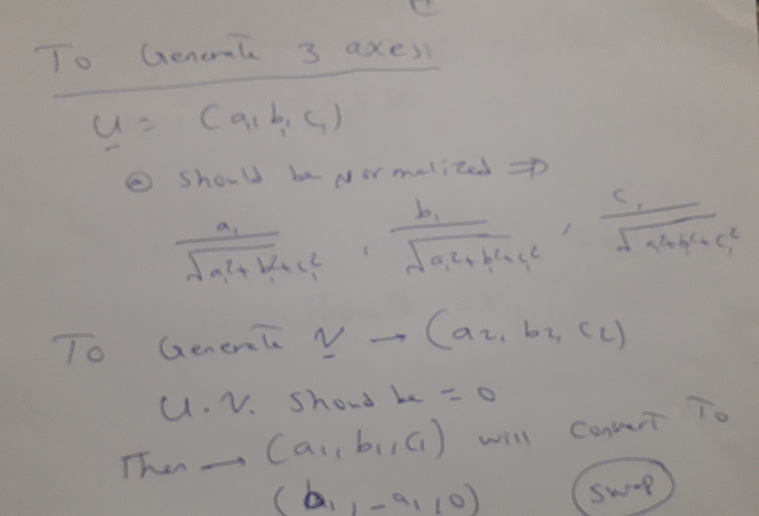 To Generate 3 axes
U = (a₁, b₁, c₁)
should be Normalized ⇒
a₁/√a₁²+b₁²+c₁² , b₁/√a₁²+b₁²+c₁² , c₁/√a₁²+b₁²+c₁²
To Generate V → (a2, b2, c2)
U.V. should be = 0
Then → (a₁, b₁, c₁) will convert To
(b₁, -a₁, 0) swap